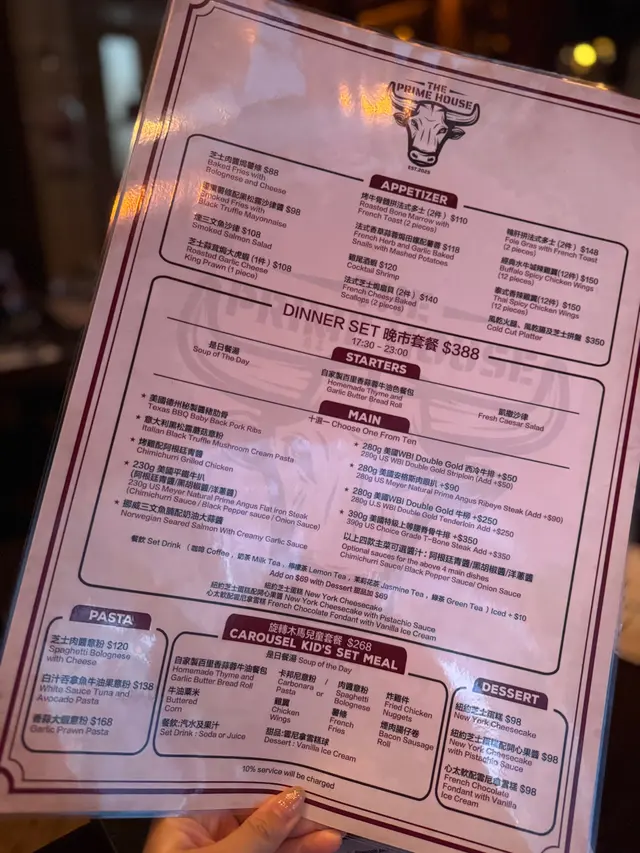 THE
PRIME HOUSE
EST.2025
APPETIZER
芝士肉醬焗薯條 $88
Baked Fries with
Bolognese and Cheese
煙燻薯條配黑松露沙律醬 $98
Smoked Fries with
Black Truffle Mayonnaise
煙三文魚沙律 $108
Smoked Salmon Salad
芝士蒜蓉焗大虎蝦 (1件) $108
Roasted Garlic Cheese
King Prawn (1 piece)
烤牛骨髓拼法式多士 (2件) $110
Roasted Bone Marrow with
French Toast (2 pieces)
法式香草蒜蓉焗田螺配薯蓉 $118
French Herb and Garlic Baked
Snails with Mashed Potatoes
雜尾酒蝦 $120
Cocktail Shrimp
法式芝士焗扇貝 (2件) $140
French Cheesy Baked
Scallops (2 pieces)
鵝肝拼法式多士 (2件) $148
Foie Gras with French Toast
(2 pieces)
經典水牛城辣雞翼(12件) $150
Buffalo Spicy Chicken Wings
(12 pieces)
泰式香辣雞翼(12件) $150
Thai Spicy Chicken Wings
(12 pieces)
風乾火腿、風乾腸及芝士拼盤 $350
Cold Cut Platter
DINNER SET 晚市套餐 $388
17:30 - 23:00
STARTERS
是日餐湯
Soup of The Day
自家製百里香蒜蓉牛油包餐包
Homemade Thyme and
Garlic Butter Bread Roll
凱撒沙律
Fresh Caesar Salad
MAIN
十選一 Choose One From Ten
* 美國德州秘製醬豬肋骨
Texas BBQ Baby Back Pork Ribs
* 意大利黑松露蘑菇意粉
Italian Black Truffle Mushroom Cream Pasta
* 烤雞配阿根廷青醬
Chimichurri Grilled Chicken
* 230g 美國平鐵牛扒
(阿根廷青醬/黑胡椒醬/洋蔥醬)
230g US Meyer Natural Prime Angus Flat Iron Steak
(Chimichurri Sauce / Black Pepper sauce / Onion Sauce)
* 挪威三文魚扇配奶油大蒜醬
Norwegian Seared Salmon With Creamy Garlic Sauce
* 280g 美國WBI Double Gold 西冷牛排 +$50
280g US WBI Double Gold Striploin (Add +$50)
* 280g 美國安格斯肉眼扒 +$90
280g US Meyer Natural Prime Angus Ribeye Steak (Add +$90)
* 280g 美國WBI Double Gold 牛柳 +$250
280g U.S WBI Double Gold Tenderloin Add +$250
* 390g 美國特級上等腰脊骨牛排 +$350
390g US Choice Grade T-Bone Steak Add +$350
以上四款主菜可選醬汁：阿根廷青醬/黑胡椒醬/洋蔥醬
Optional sauces for the above 4 main dishes
Chimichurri Sauce/ Black Pepper Sauce/ Onion Sauce
餐飲 Set Drink （咖啡 Coffee，奶茶 Milk Tea，檸檬茶 Lemon Tea，茉莉花茶 Jasmine Tea，綠茶 Green Tea ) Iced + $10
Add on $69 with Dessert 甜品加 $69
紐約芝士蛋糕 New York Cheesecake
紐約芝士蛋糕配開心果醬 New York Cheesecake with Pistachio Sauce
心太軟配雲尼拿雪糕 French Chocolate Fondant with Vanilla Ice Cream
PASTA
芝士肉醬意粉 $120
Spaghetti Bolognese
with Cheese
白汁吞拿魚牛油果意粉 $138
White Sauce Tuna and
Avocado Pasta
香蒜大蝦意粉 $168
Garlic Prawn Pasta
旋轉木馬兒童套餐 $268
CAROUSEL KID'S SET MEAL
是日餐湯 Soup of the Day
自家製百里香蒜蓉牛油餐包
Homemade Thyme and
Garlic Butter Bread Roll
牛油粟米
Buttered
Corn
餐飲:汽水及果汁
Set Drink : Soda or Juice
卡邦尼意粉 /
Carbonara or
Pasta
雞翼
Chicken
Wings
甜品:雲尼拿雪糕球
Dessert : Vanilla Ice Cream
肉醬意粉
Spaghetti
Bolognese
薯條
French
Fries
炸雞件
Fried Chicken
Nuggets
煙肉腸仔卷
Bacon Sausage
Roll
DESSERT
紐約芝士蛋糕 $98
New York Cheesecake
紐約芝士蛋糕配開心果醬 $98
New York Cheesecake
with Pistachio Sauce
心太軟配雲尼拿雪糕 $98
French Chocolate
Fondant with Vanilla
Ice Cream
10% service will be charged